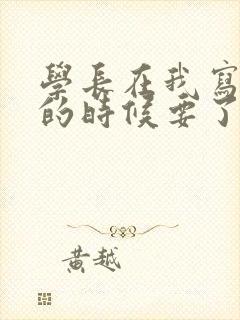 學長在我寫
的時候要了
黃越